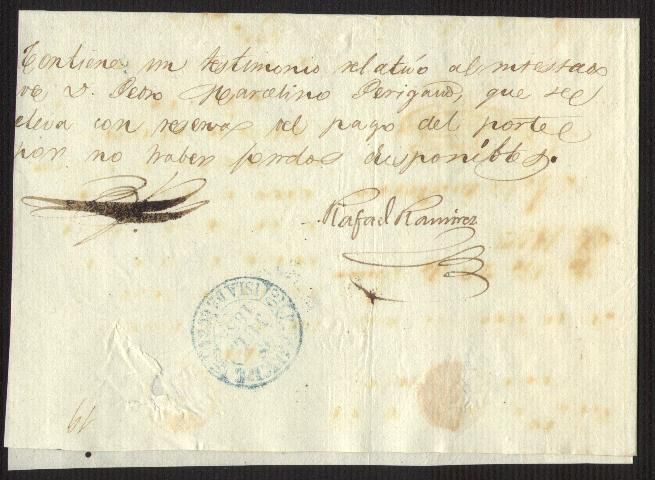 Contiene un testimonio relativo al intestado
de D. Pedro Marcelino Perigaud, que se
eleva con reserva del pago del porte
por no haber fondos disponibles.
Rafael Ramirez
ISLA DE